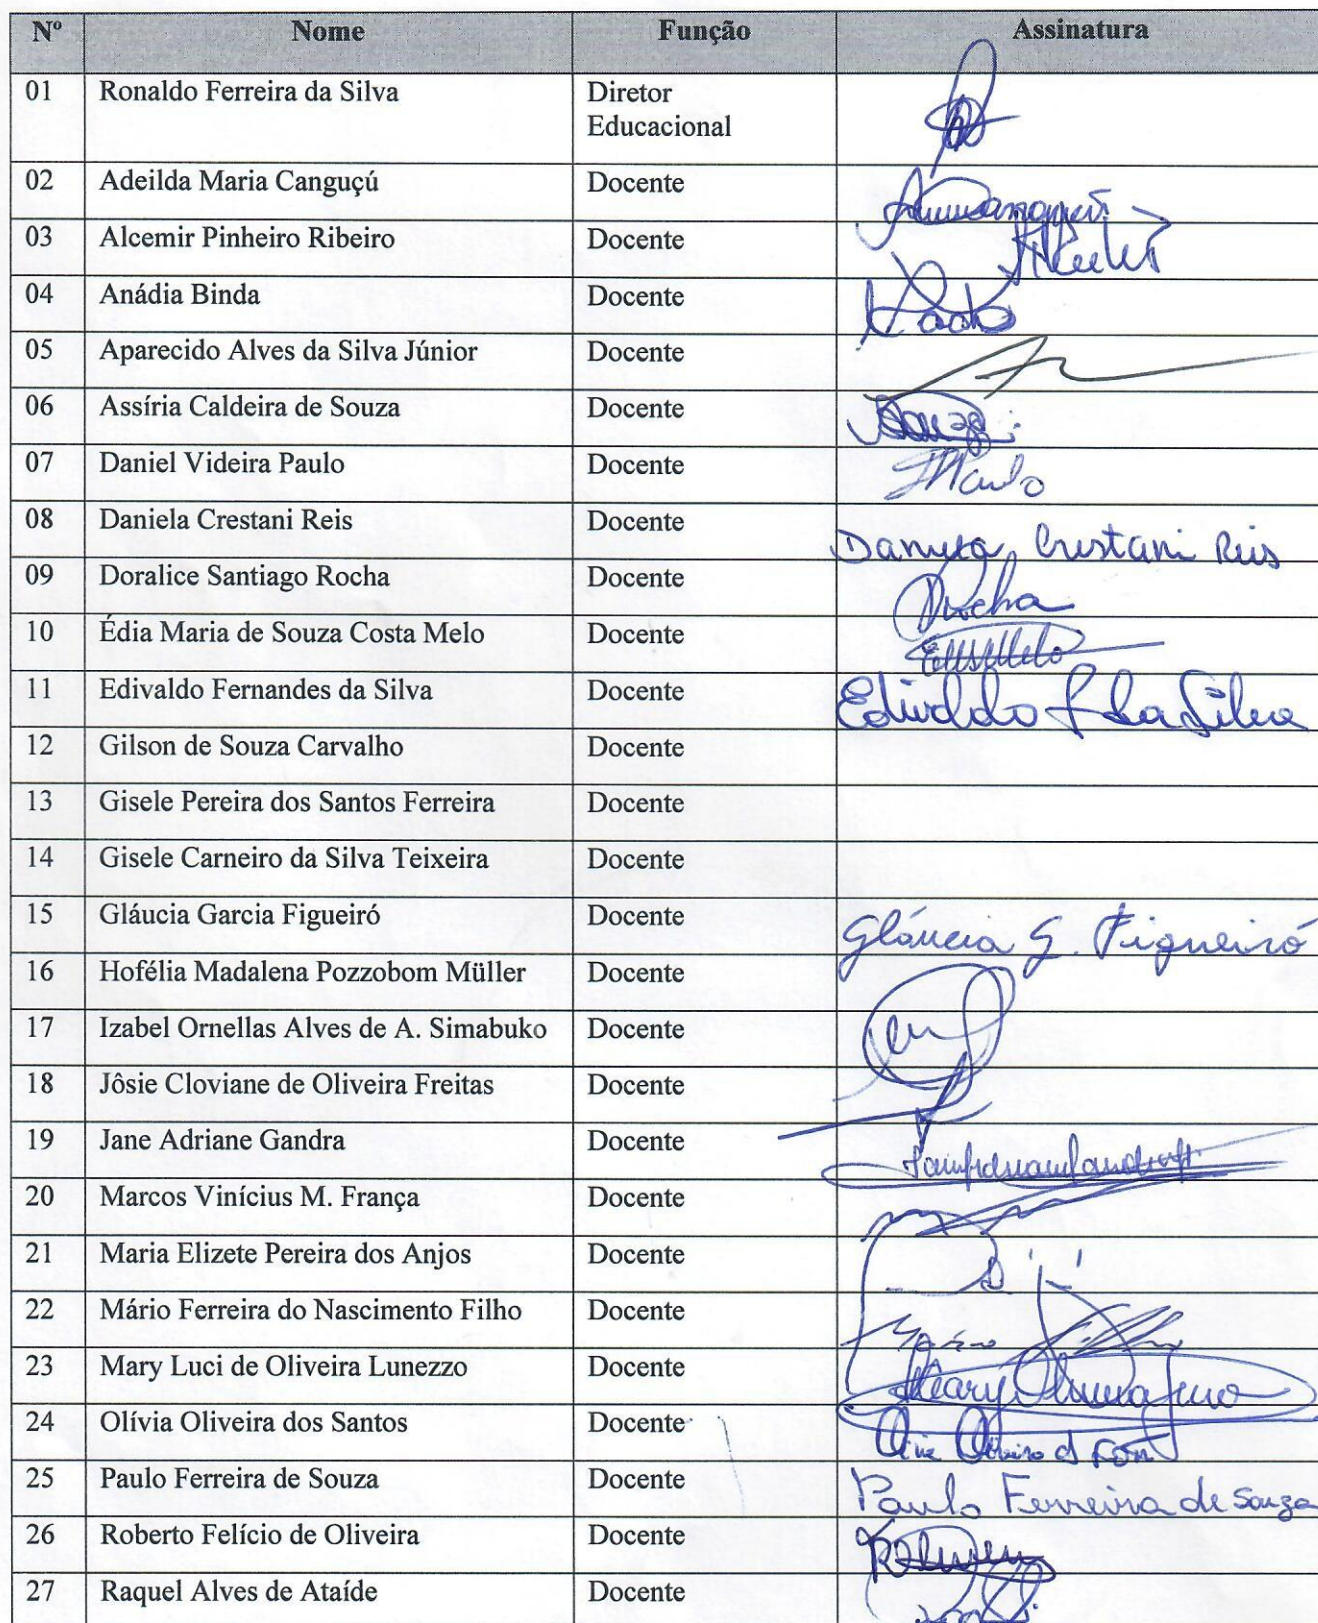 Nº Nome Função Assinatura
01 Ronaldo Ferreira da Silva Diretor
Educacional
02 Adeilda Maria Canguçú Docente
03 Alcemir Pinheiro Ribeiro Docente
04 Anádia Binda Docente
05 Aparecido Alves da Silva Júnior Docente
06 Assíria Caldeira de Souza Docente Souza
07 Daniel Videira Paulo Docente Paulo
08 Daniela Crestani Reis Docente Daniela Crestani Reis
09 Doralice Santiago Rocha Docente Rocha
10 Édia Maria de Souza Costa Melo Docente
11 Edivaldo Fernandes da Silva Docente Edivaldo F da Silva
12 Gilson de Souza Carvalho Docente
13 Gisele Pereira dos Santos Ferreira Docente
14 Gisele Carneiro da Silva Teixeira Docente
15 Gláucia Garcia Figueiró Docente Gláucia G. Figueiró
16 Hofélia Madalena Pozzobom Müller Docente
17 Izabel Ornellas Alves de A. Simabuko Docente
18 Jôsie Cloviane de Oliveira Freitas Docente
19 Jane Adriane Gandra Docente
20 Marcos Vinícius M. França Docente
21 Maria Elizete Pereira dos Anjos Docente
22 Mário Ferreira do Nascimento Filho Docente
23 Mary Luci de Oliveira Lunezzo Docente
24 Olívia Oliveira dos Santos Docente
25 Paulo Ferreira de Souza Docente Paulo Ferreira de Souza
26 Roberto Felício de Oliveira Docente
27 Raquel Alves de Ataíde Docente